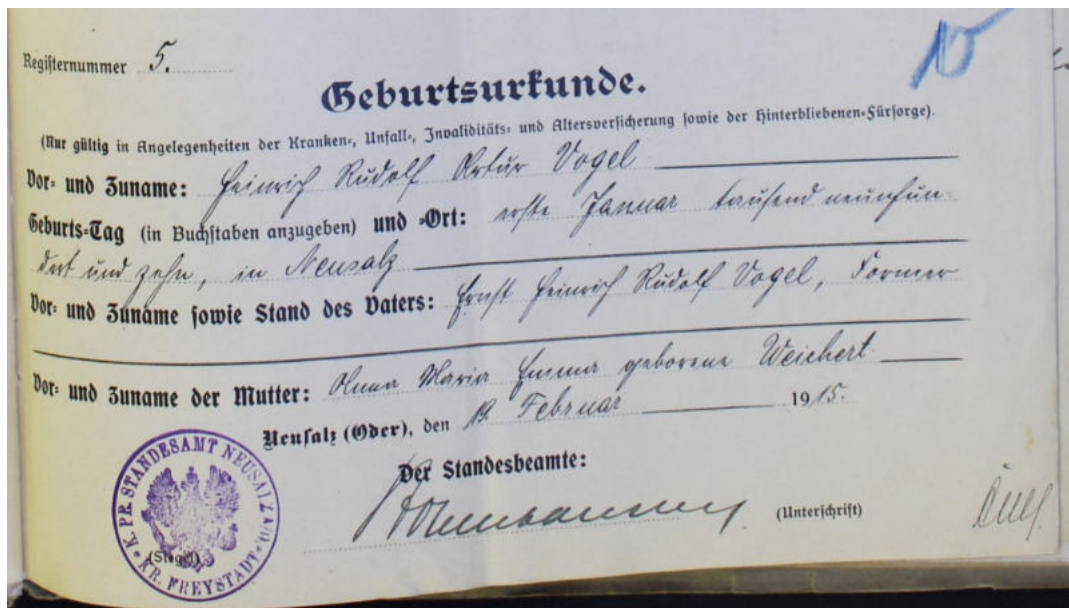 Registernummer 5.
Geburtsurkunde.
(Nur gültig in Angelegenheiten der Kranken-, Unfall-, Invaliditäts- und Altersversicherung sowie der Hinterbliebenen-Fürsorge).
Vor- und Zuname: Heinrich Rudolf Artur Vogel
Geburts-Tag (in Buchstaben anzugeben) und -Ort: erste Januar tausend neunhun-
dert und zehn, in Neusalz
Vor- und Zuname sowie Stand des Vaters: Ernst Heinrich Rudolf Vogel, Former
Vor- und Zuname der Mutter: Anna Maria Emma geborene Weichert
Neusalz (Oder), den 19. Februar 1915.
Der Standesbeamte:
(Unterschrift)
K. PR. STANDESAMT NEUSALZ A/O. * KR. FREYSTADT *
(Siegel)